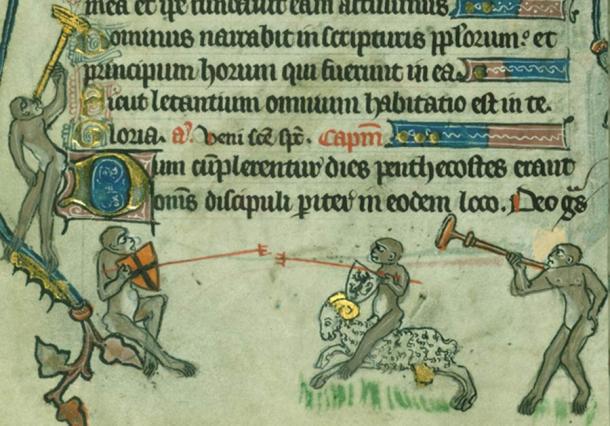 mea et ip̅e fundauit eam altissimus.
Dominus narrabit in scripturis pp̅lorum: et
principum horum qui fuerunt in ea.
Sicut letantium omnium habitatio est in te.
Gloria. a'. Veni sc̅e sp̅c. Cap̅m
Dum cu̅plerentur dies penthecostes erant
om̅s discipuli p̲iter in eodem loco. Deo gs̅